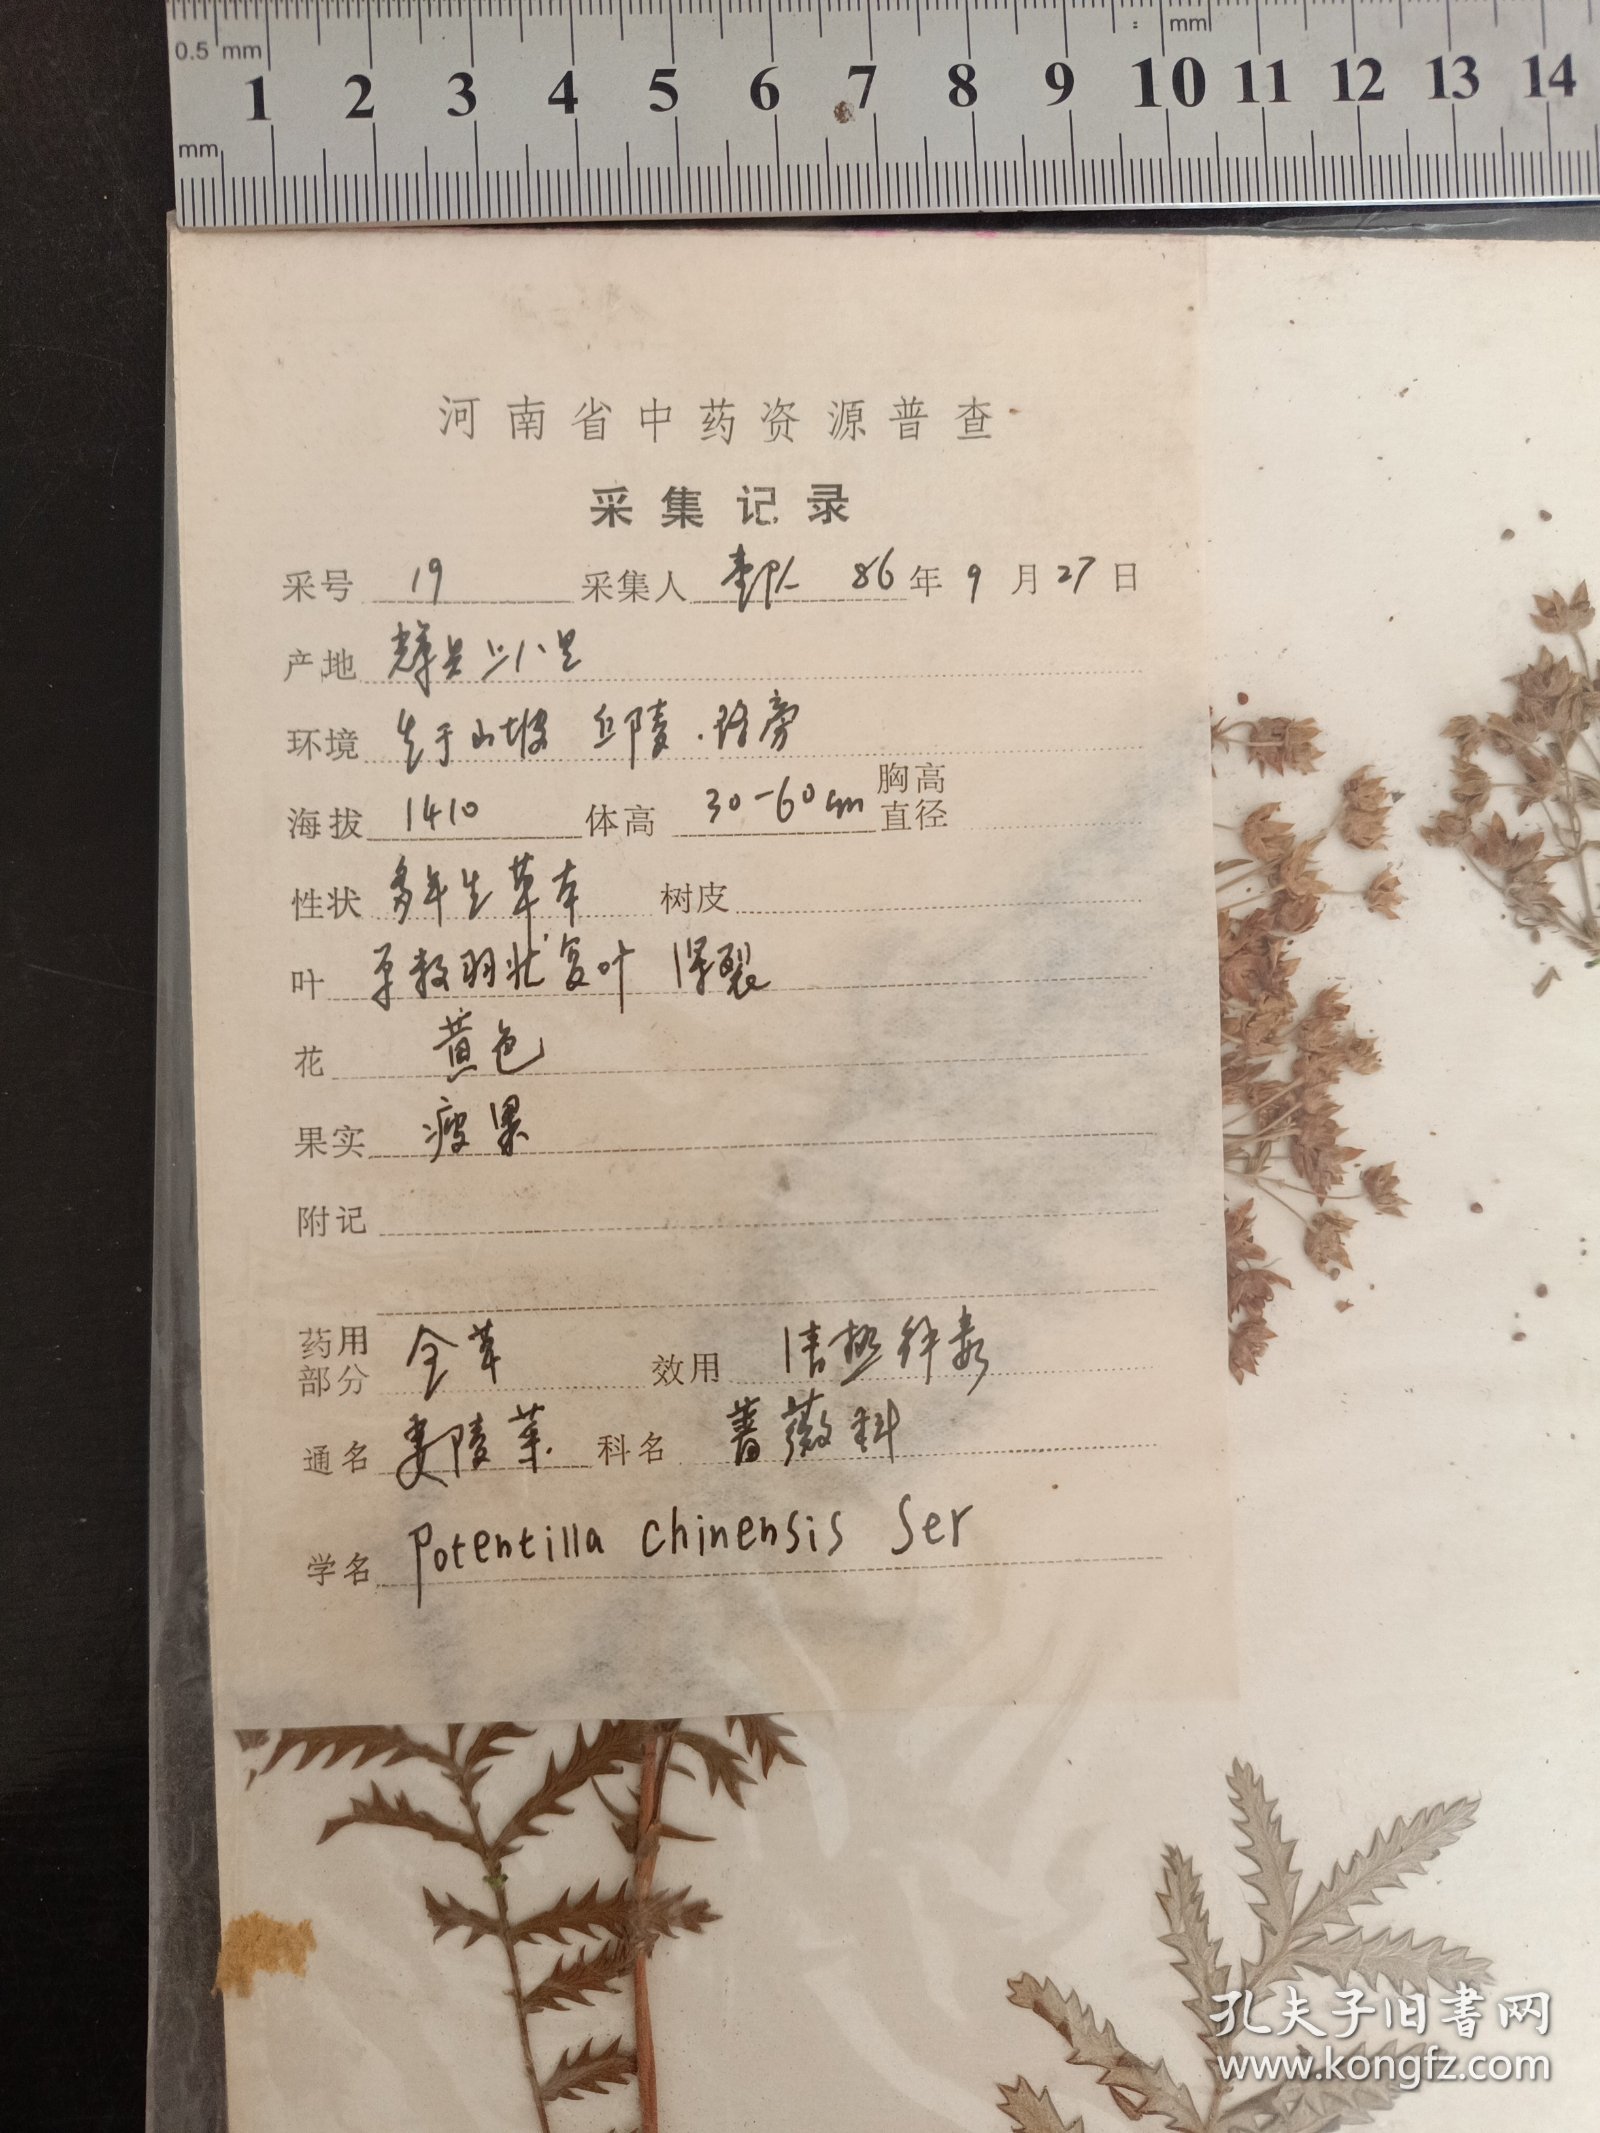 0.5 mm
mm
1 2 3 4 5 6 7 8 9 10 11 12 13 14
mm
河南省中药资源普查
采集记录
采号 19 采集人 86年9月27日
产地 辉县 八里
环境 生于山坡 丘陵.路旁
海拔 1410 体高 30-60cm 胸高直径
性状 多年生草本 树皮
叶 羽状复叶 深裂
花 黄色
果实 瘦果
附记
药用部分 全草 效用 清热解毒
通名 委陵菜. 科名 蔷薇科
学名 Potentilla chinensis Ser
孔夫子旧书网
www.kongfz.com